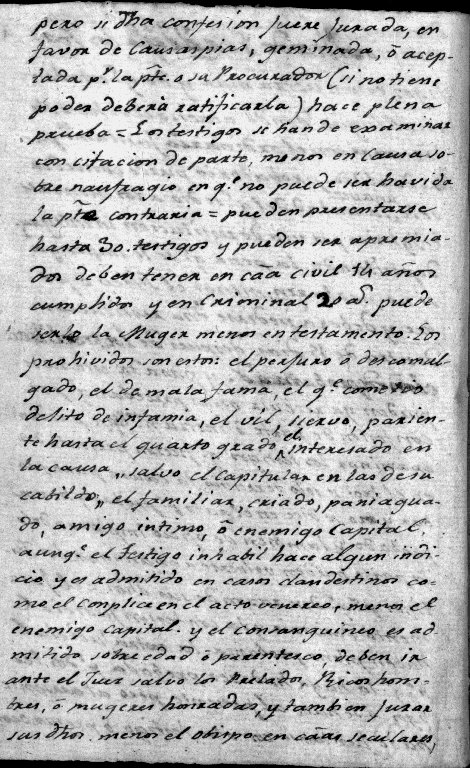 pero si dha confesion fuere Jurada, en
favor de Causas pias, geminada, ó acep-
tada pr. la pte. o su Procurador (si no tiene
poder deberá ratificarla) hace plena
prueba = Los testigos se han de examinar
con citacion de parte, menos en Causa so-
bre naufragio en q.e no puede ser havida
la pte contraria = pueden presentarse
hasta 30. testigos y pueden ser apremia-
dos deben tener en caa civil 14 años
cumplidos y en Criminal 20 as. puede
serlo la Muger menos en testamento. Los
prohividos son estos: el perjuro ó descomul-
gado, el de mala fama, el q.e cometio
delito de infamia, el vil, siervo, parien-
te hasta el quarto grado el interesado en
la causa, salvo el Capitular en las de su
cabildo, el familiar, criado, paniagua-
do, amigo intimo, ó enemigo Capital,
aunq.e el testigo inhabil hace algun indi-
cio y es admitido en casos clandestinos co-
mo el Conplice en el acto venereo, menos el
enemigo capital. y el Consanguineo es ad-
mitido sobre edad ó parentesco, deben ir
ante el Juez salvo los Prelados, Ricos hom-
bres, ó mugeres honradas, y tambien Jurar
sus dhos. menos el obispo en caas seculares,